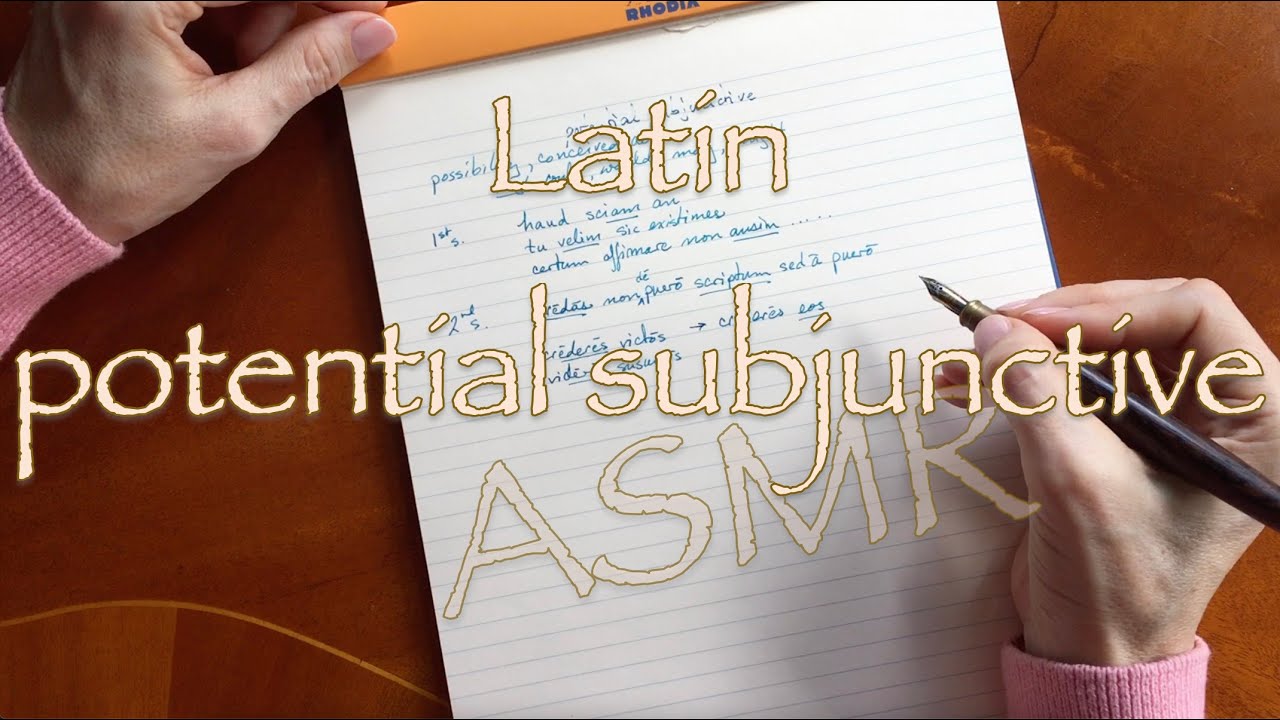 RHODIA
Latin
potential subjunctive
ASMR
subjunctive
possibility, conceived
1st s. haud sciam an
tu velim sic existimes
certum affirmare non ausim .....
2nd s. crēdās nōn dē puerō scriptum sed ā puerō
crēderēs victōs → crēderēs eōs